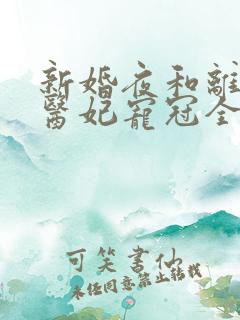 新婚夜和離
醫妃寵冠全
可笑書仙
未經同意禁止轉載